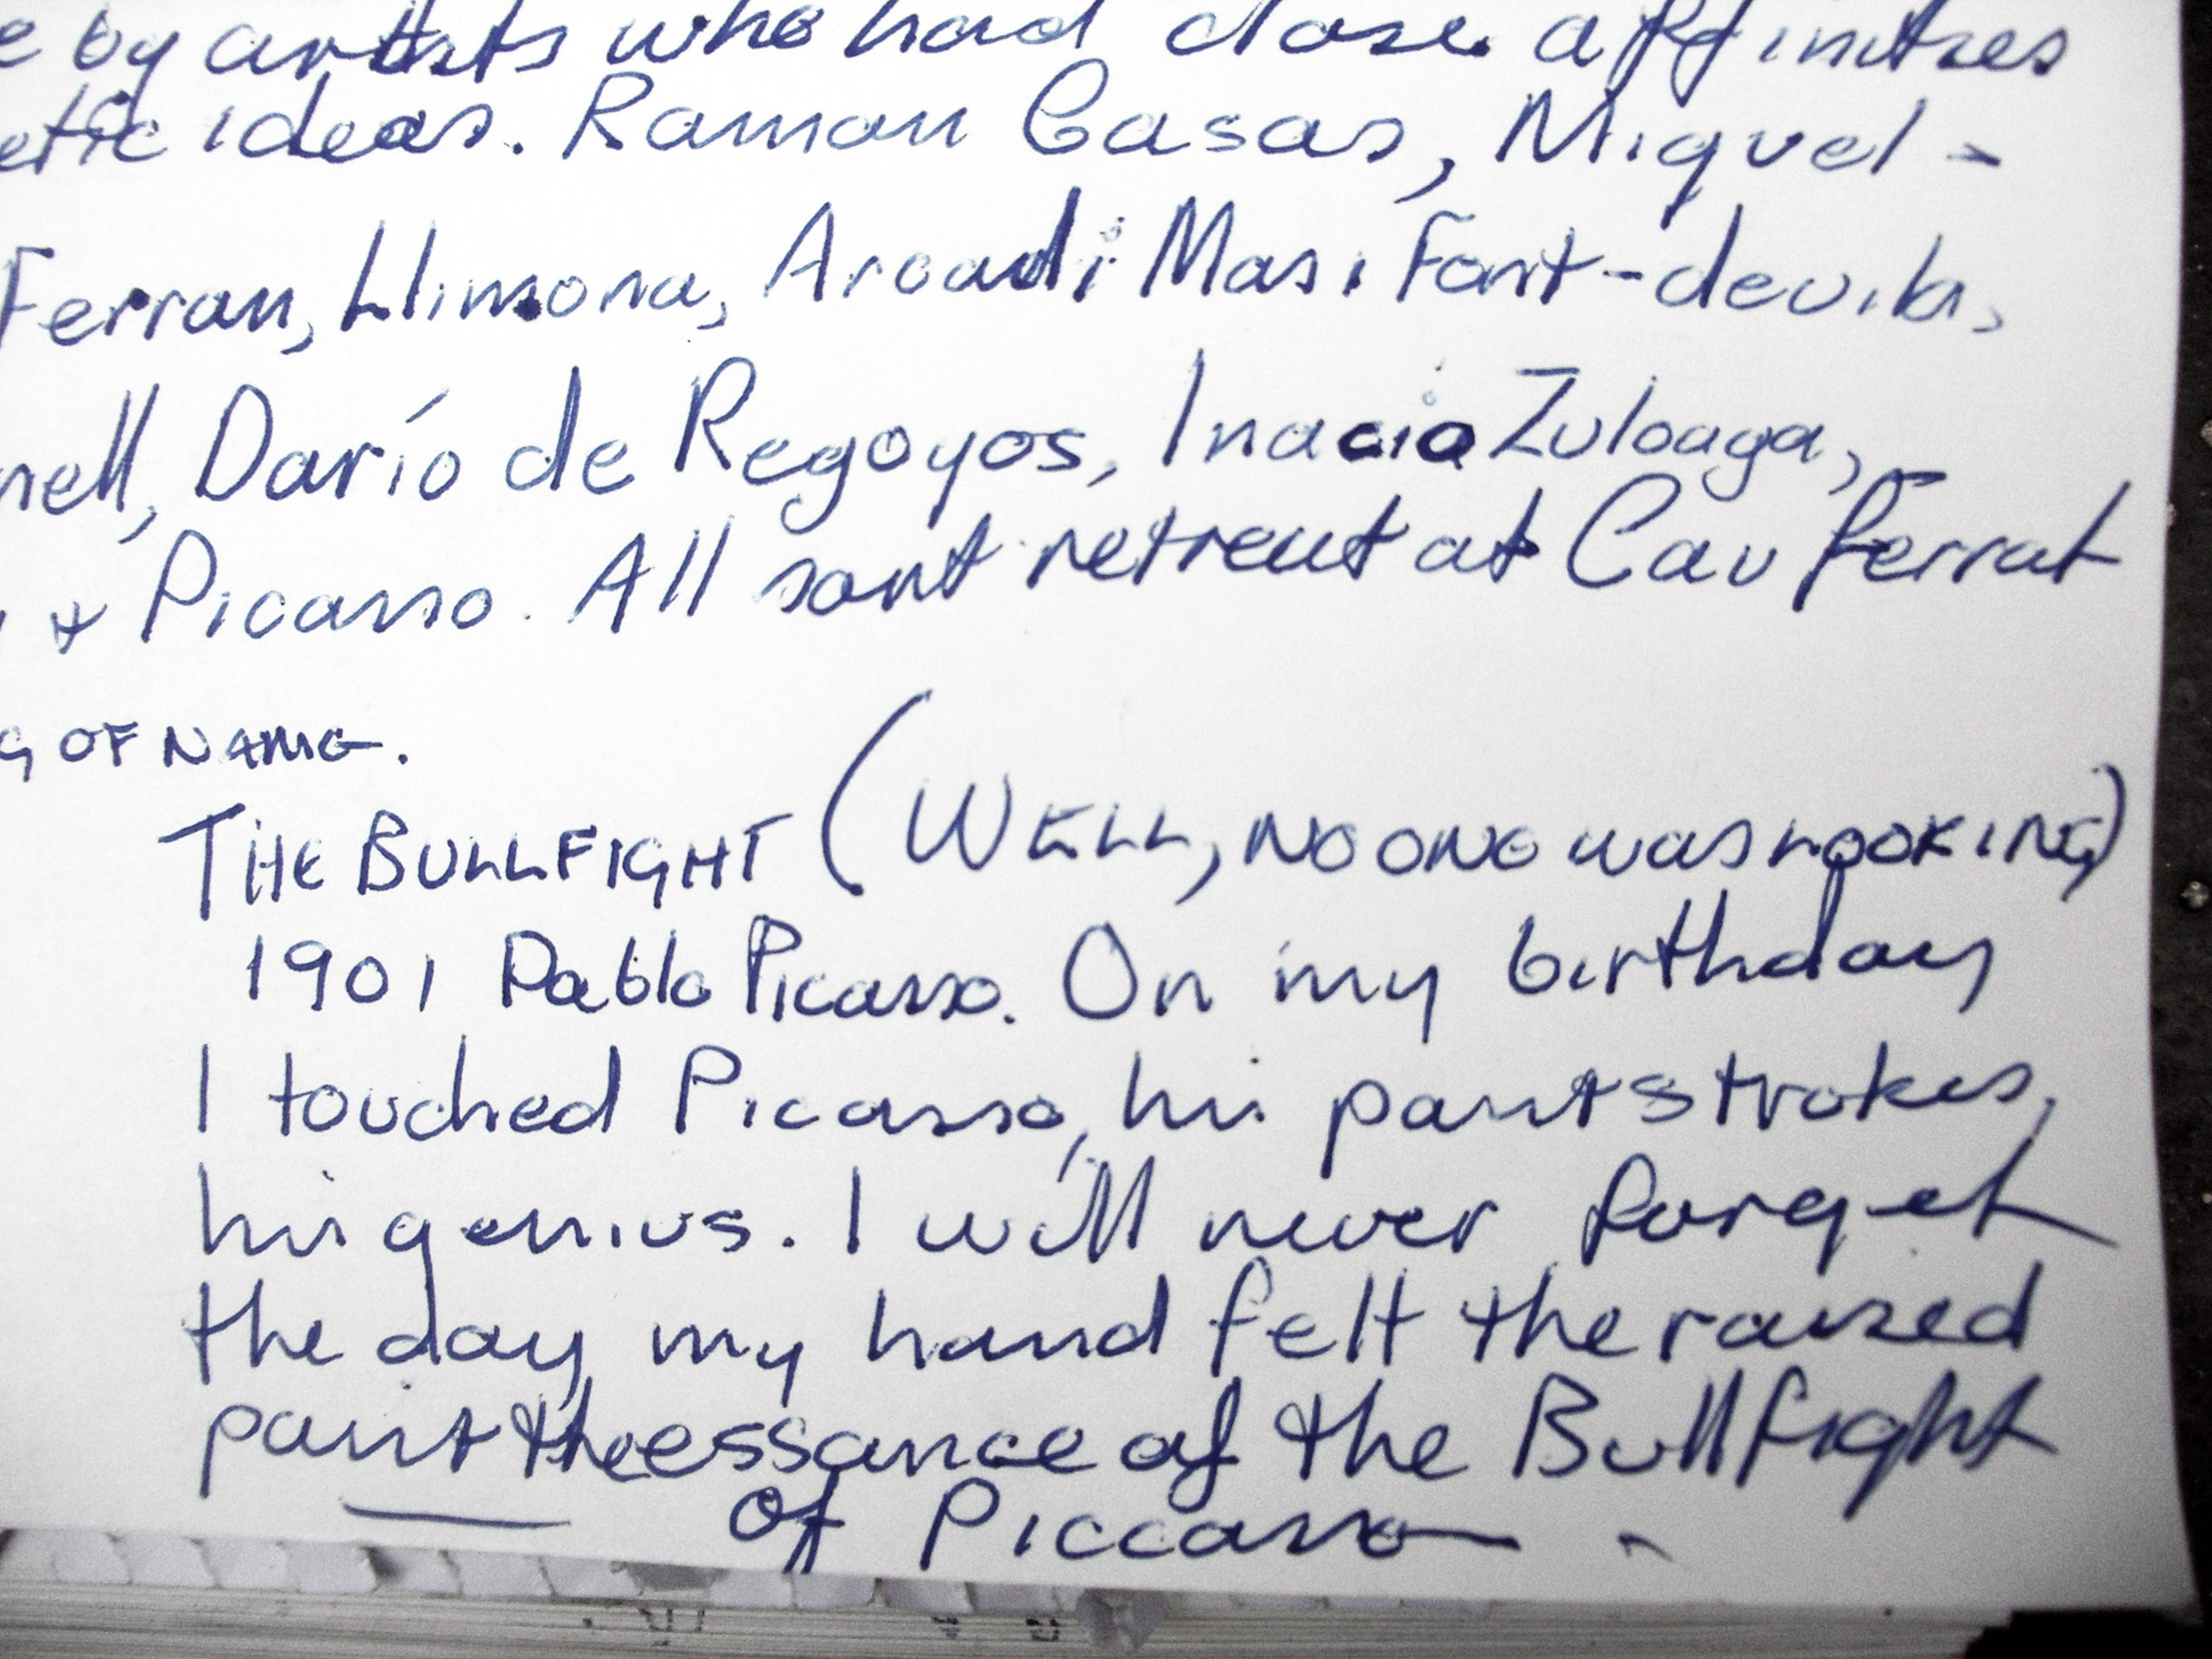 e by artists who had close affinities
etic ideas. Ramon Casas, Miquel -
Ferran, Llimona, Arcadi Mas i Font-devila,
nell, Darío de Regoyos, Inacio Zuloaga,
+ Picasso. All sont retreat at Cau Ferrat
G OF NAME.
THE BULLFIGHT (WELL, NO ONE was LOOKING)
1901 Pablo Picasso. On my birthday
I touched Picasso, his paint strokes,
his genius. I will never forget
the day my hand felt the raised
paint the essance of the Bullfight
of Piccasso